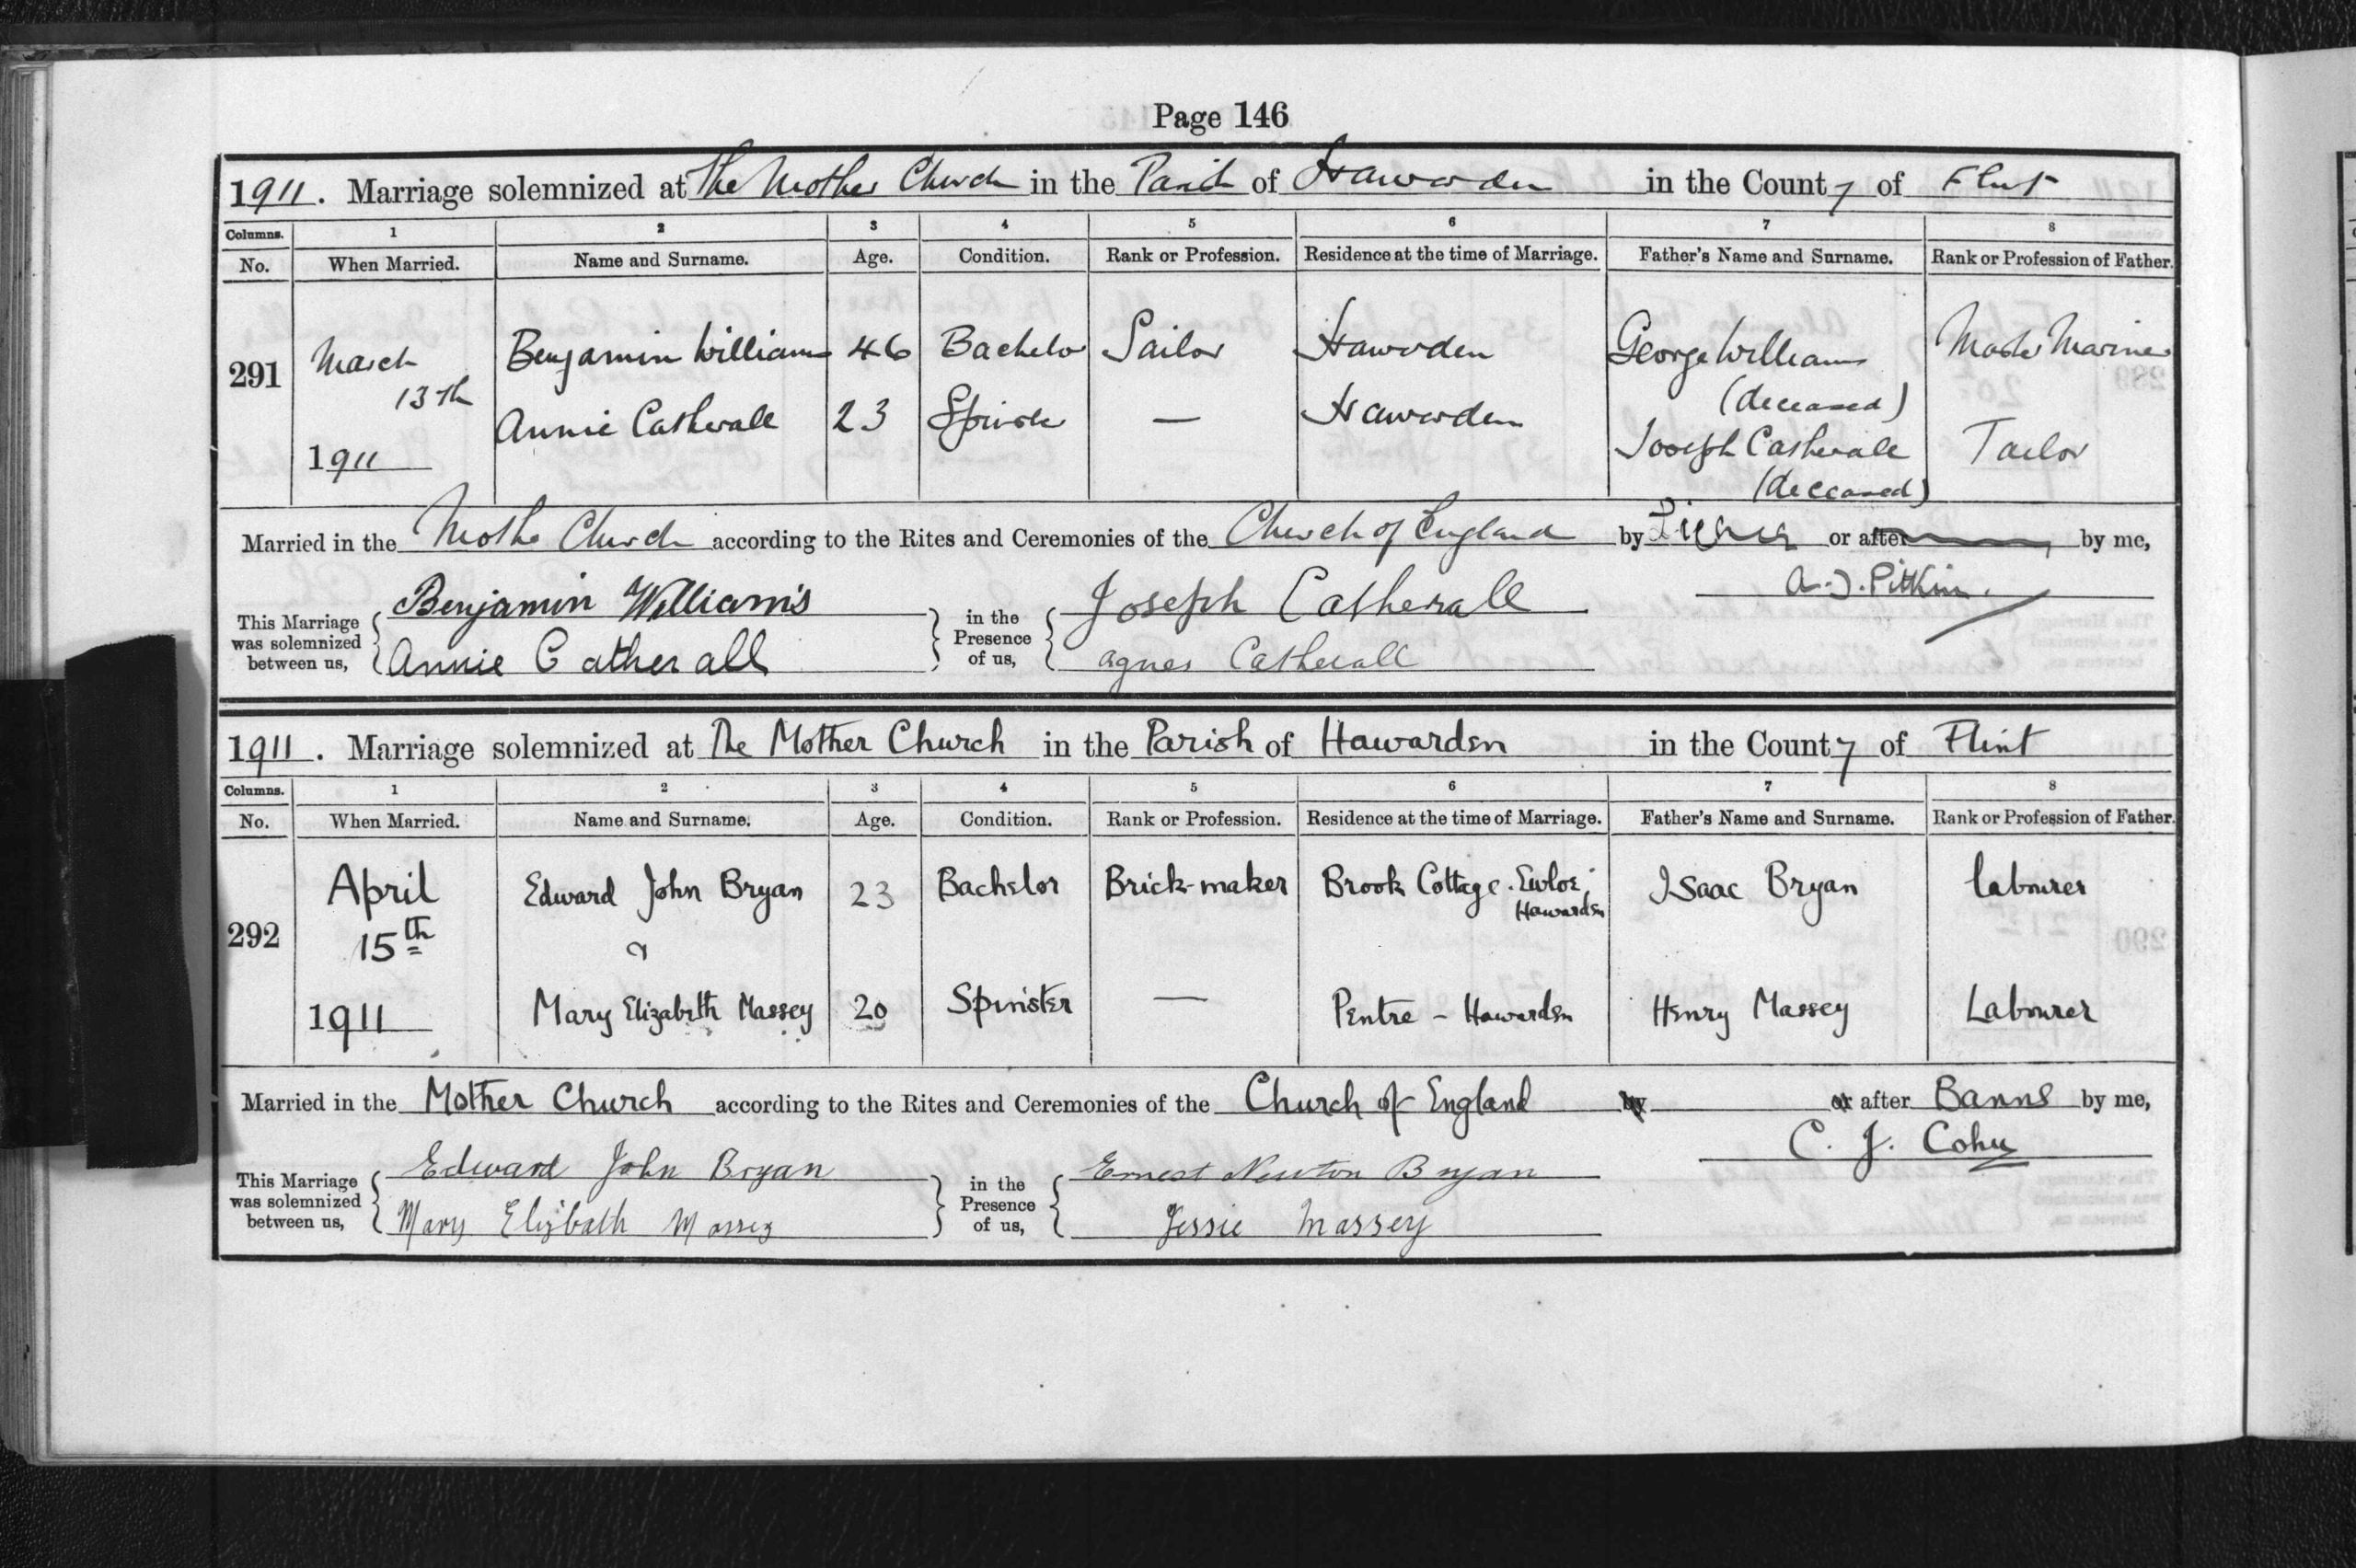 Page 146
1911. Marriage solemnized at The Mother Church in the Parish of Hawarden in the County of Flint
Columns. 1 2 3 4 5 6 7 8
No. When Married. Name and Surname. Age. Condition. Rank or Profession. Residence at the time of Marriage. Father's Name and Surname. Rank or Profession of Father.
291 March 13th 1911
Benjamin Williams 46 Bachelor Sailor Hawarden George Williams (deceased) Master Mariner
Annie Catherall 23 Spinster — Hawarden Joseph Catherall (deceased) Tailor
Married in the Mother Church according to the Rites and Ceremonies of the Church of England by Licence or after by me,
A. J. Pitkin.
This Marriage was solemnized between us,
Benjamin Williams
Annie Catherall
in the Presence of us,
Joseph Catherall
Agnes Catherall
1911. Marriage solemnized at The Mother Church in the Parish of Hawarden in the County of Flint
Columns. 1 2 3 4 5 6 7 8
No. When Married. Name and Surname. Age. Condition. Rank or Profession. Residence at the time of Marriage. Father's Name and Surname. Rank or Profession of Father.
292 April 15th 1911
Edward John Bryan 23 Bachelor Brick-maker Brook Cottage. Ewloe, Hawarden Isaac Bryan labourer
&
Mary Elizabeth Massey 20 Spinster — Pentre - Hawarden Henry Massey Labourer
Married in the Mother Church according to the Rites and Ceremonies of the Church of England by or after Banns by me,
C. J. Cohu
This Marriage was solemnized between us,
Edward John Bryan
Mary Elizbath Massey
in the Presence of us,
Ernest Newton Bryan
Jessie Massey